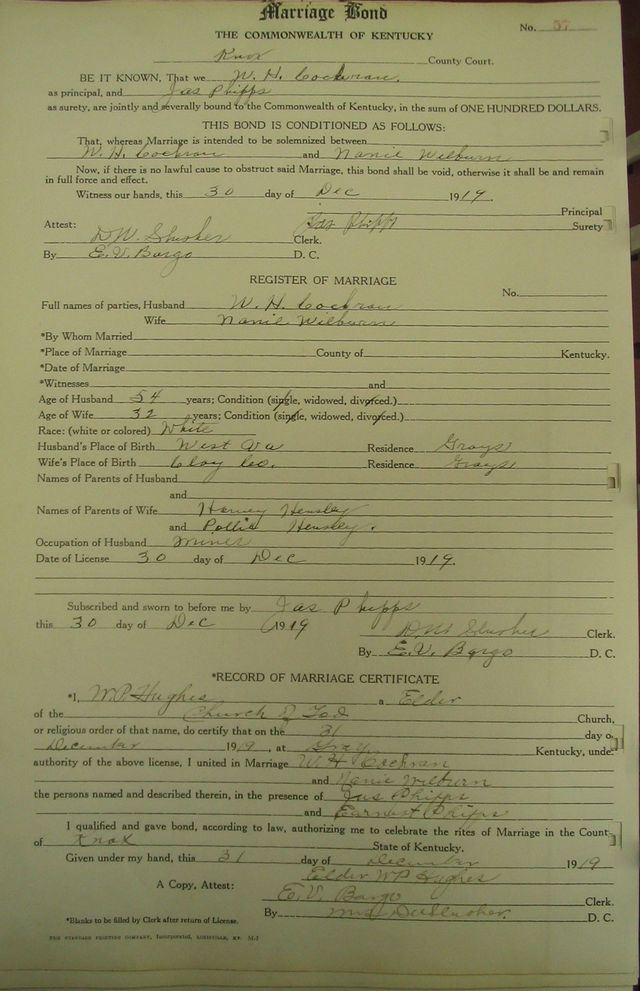 Marriage Bond
THE COMMONWEALTH OF KENTUCKY
No. 57
Knox County Court.
BE IT KNOWN, That we W. H. Cochran,
as principal, and Jas Phipps
as surety, are jointly and severally bound to the Commonwealth of Kentucky, in the sum of ONE HUNDRED DOLLARS.
THIS BOND IS CONDITIONED AS FOLLOWS:
That, whereas Marriage is intended to be solemnized between
W. H. Cochran and Nanie Wilburn
Now, if there is no lawful cause to obstruct said Marriage, this bond shall be void, otherwise it shall be and remain
in full force and effect.
Witness our hands, this 30 day of Dec 1919.
Principal
Attest: Jas Phipps Surety
D. W. Slusher Clerk.
By E. V. Bargo D. C.
REGISTER OF MARRIAGE
No.
Full names of parties, Husband W. H. Cochran
Wife Nanie Wilburn
*By Whom Married
*Place of Marriage County of Kentucky.
*Date of Marriage
*Witnesses and
Age of Husband 54 years; Condition (single, widowed, divorced.)
Age of Wife 32 years; Condition (single, widowed, divorced.)
Race: (white or colored) White
Husband's Place of Birth West Va Residence Grays
Wife's Place of Birth Clay Co. Residence Grays
Names of Parents of Husband
and
Names of Parents of Wife Harvey Hensley
and Pollie Hensley.
Occupation of Husband miner
Date of License 30 day of Dec 1919.
Subscribed and sworn to before me by Jas Phipps
this 30 day of Dec 1919
D. W. Slusher Clerk.
By E. V. Bargo D. C.
*RECORD OF MARRIAGE CERTIFICATE
*I, W. P. Hughes a Elder
of the Church of God Church,
or religious order of that name, do certify that on the 31 day o
December 1919, at Gray Kentucky, unde
authority of the above license, I united in Marriage W H Cochran
and Nanie Wilburn
the persons named and described therein, in the presence of Jas Phipps
and Earnest Phips
I qualified and gave bond, according to law, authorizing me to celebrate the rites of Marriage in the Count
of Knox State of Kentucky.
Given under my hand, this 31 day of December 1919
Elder W P Hughes
A Copy, Attest: E. V. Bargo Clerk.
By Mrs D. W. Slusher. D. C.
*Blanks to be filled by Clerk after return of License.
THE STANDARD PRINTING COMPANY, Incorporated, LOUISVILLE, KY.